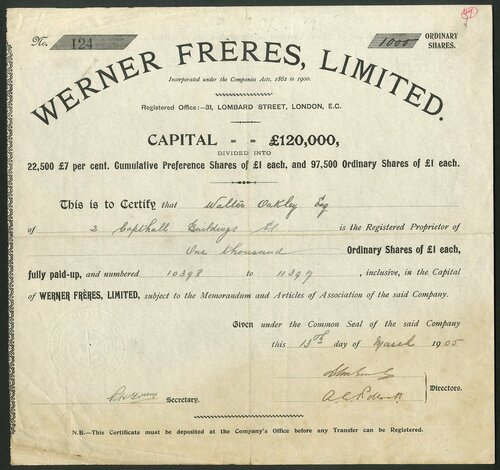 No. 124
1000 ORDINARY SHARES.
WERNER FRÈRES, LIMITED.
Incorporated under the Companies Acts, 1862 to 1900.
Registered Office:—31, LOMBARD STREET, LONDON, E.C.
CAPITAL - - £120,000,
DIVIDED INTO
22,500 £7 per cent. Cumulative Preference Shares of £1 each, and 97,500 Ordinary Shares of £1 each.
This is to Certify that Walter Oakley Esq
of 2 Copthall Buildings is the Registered Proprietor of
One thousand Ordinary Shares of £1 each,
fully paid-up, and numbered 10398 to 11397, inclusive, in the Capital
of WERNER FRÈRES, LIMITED, subject to the Memorandum and Articles of Association of the said Company.
Given under the Common Seal of the said Company
this 13th day of March 1905
Directors.
Secretary.
N.B.—This Certificate must be deposited at the Company's Office before any Transfer can be Registered.